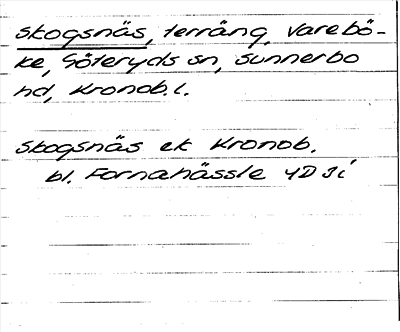 Skogsnäs, terräng, Varebö-
ke, Göteryds sn, Sunnerbo
hd, Kronob. l.
Skogsnäs ek Kronob.
bl. Fornahässle 4D 3i